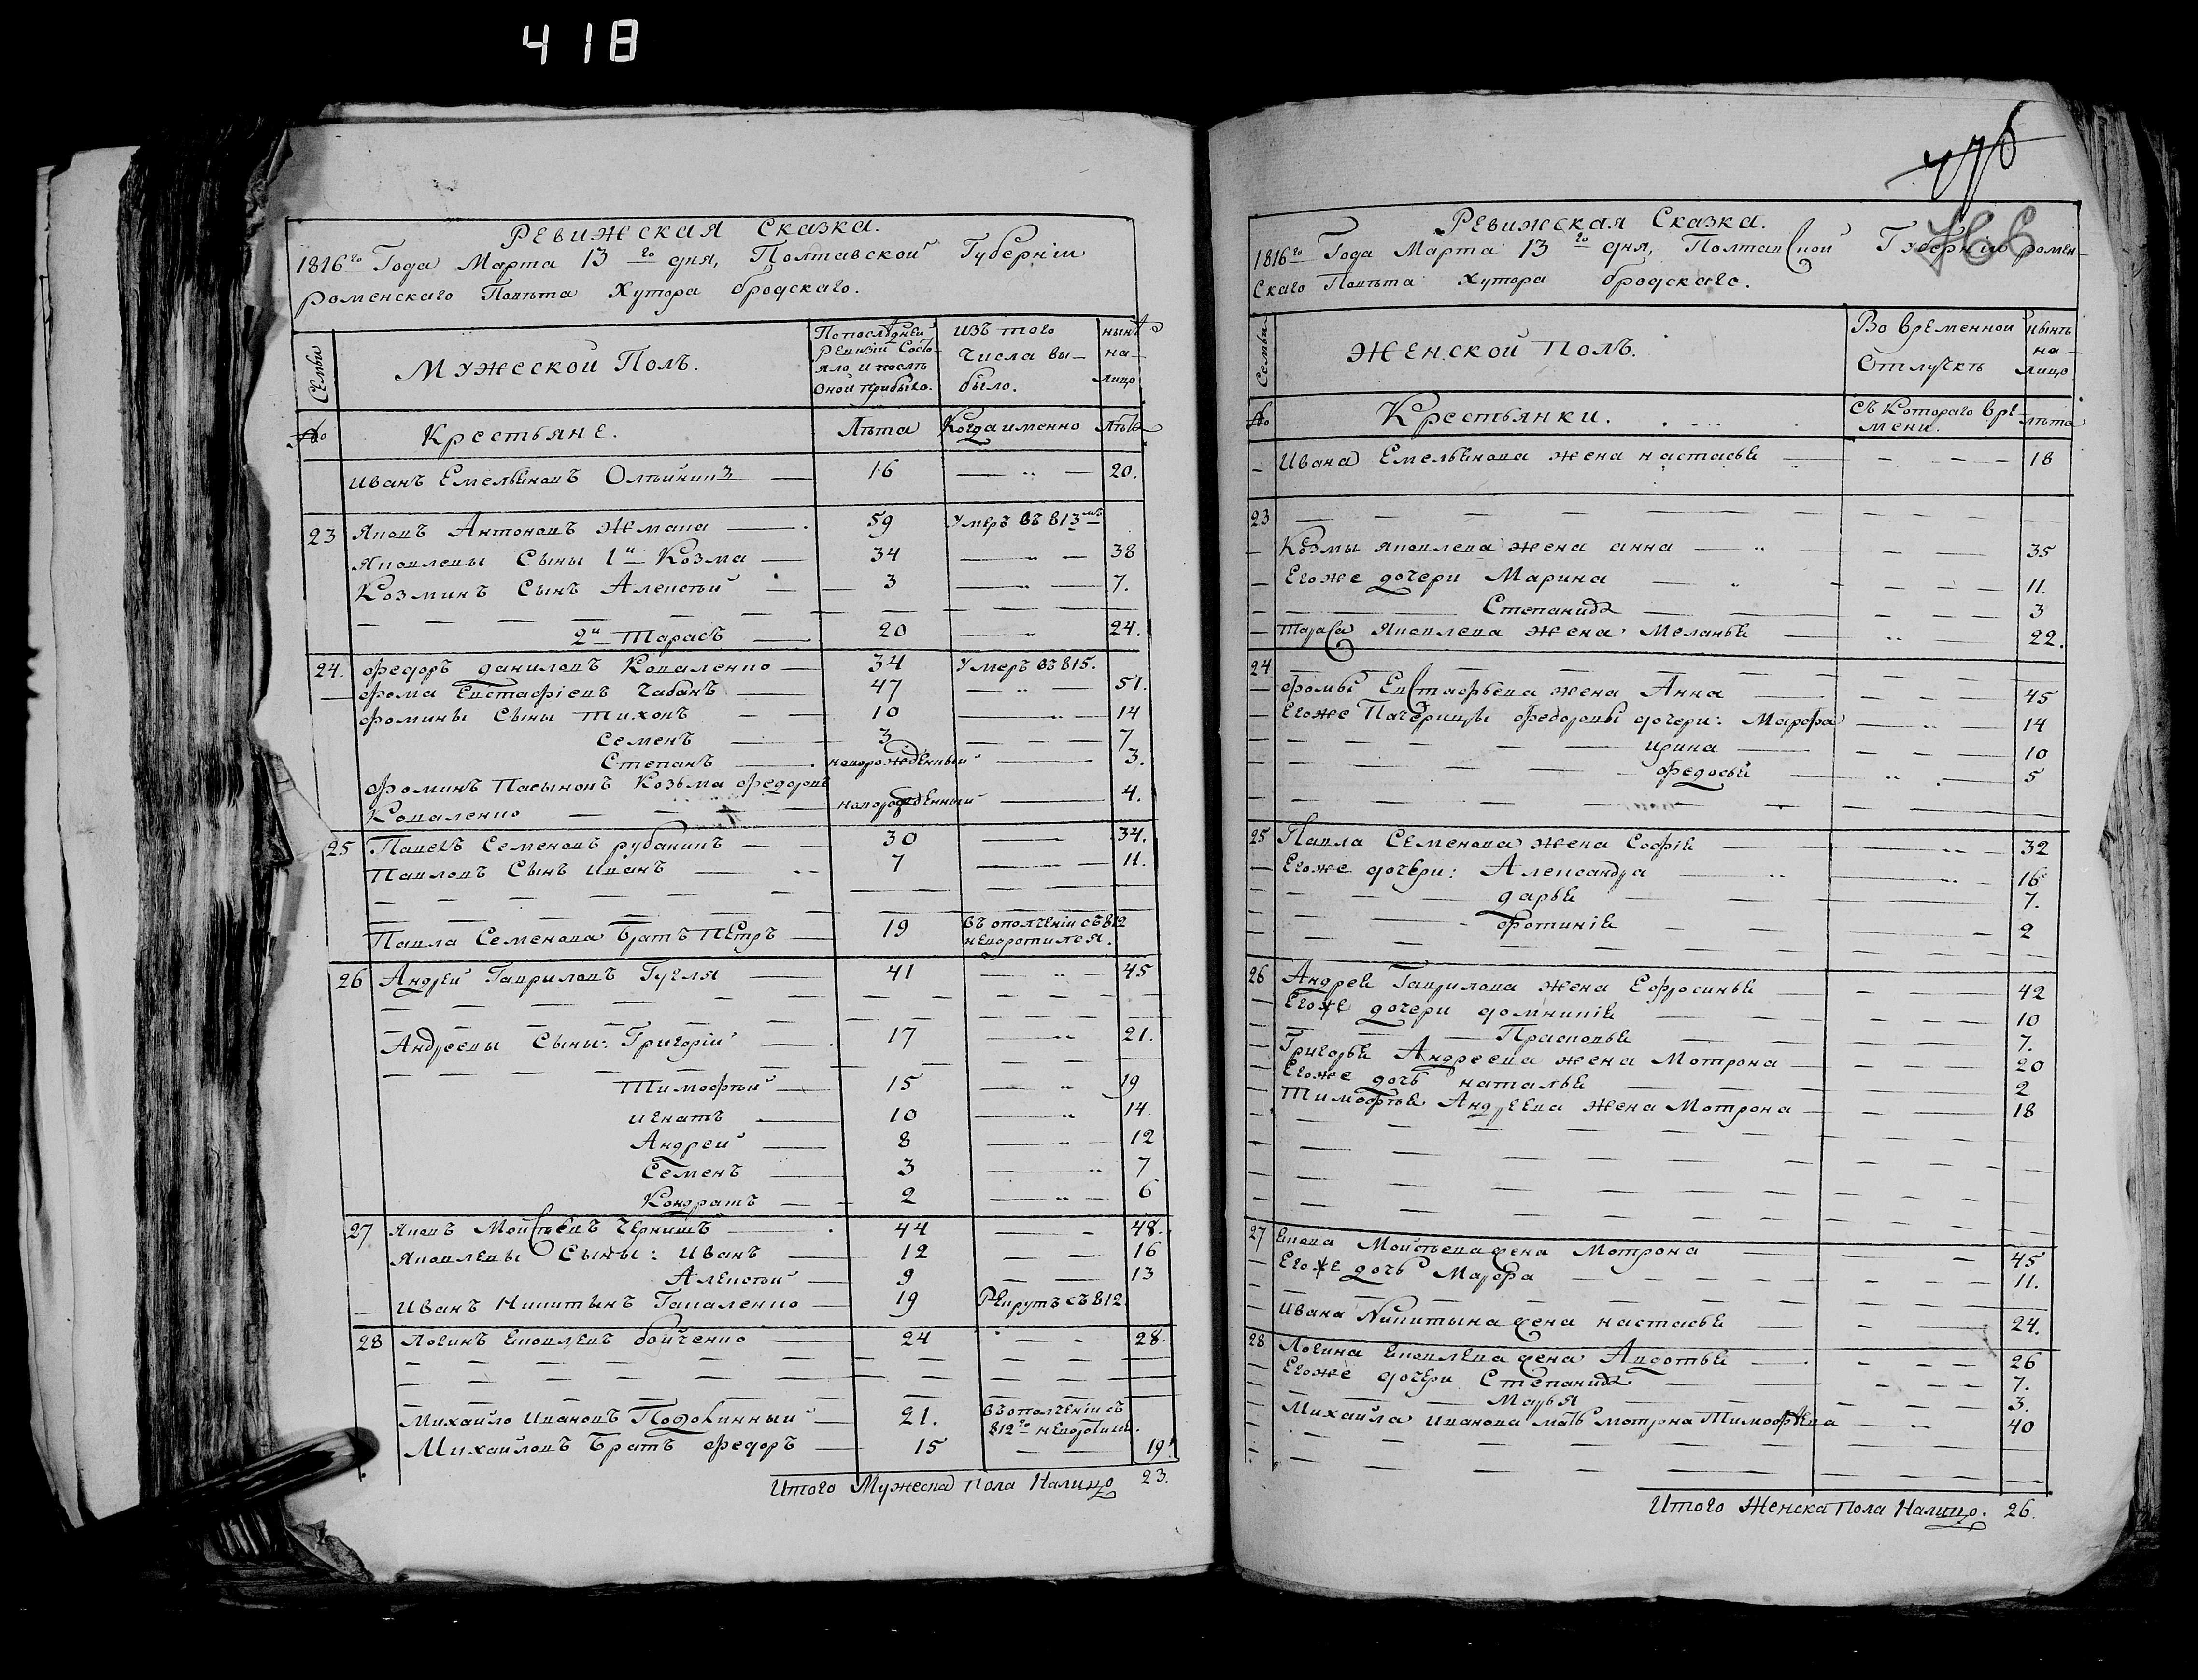 418
Ревижская Сказка.
1816го Года Марта 13го дня, Полтавской Губерніи
роменскаго Повѣта Хутора бродскаго.
Семьи
Мужеской Полъ.
По последней Ревизіи Состояло и послѣ оной прибыло.
изъ того Числа выбыло.
нынѣ на-лицо
№
Крестьяне.
Лѣта
Когда именно
Лѣта
Иванъ Емельяновъ Олѣйникъ — 16 — 20.
23 Яковъ Антоновъ Жмака — 59 Умеръ въ 813мъ
Яковлевы Сыны 1й Козма — 34 — 38
Козминъ Сынъ Алексѣй — 3 — 7.
2й Тарасъ — 20 — 24.
24. Федоръ Даниловъ Коваленко — 34 Умеръ въ 815.
Фома Евстафіевъ Чабанъ — 47 — 51.
Фомины Сыны Тихонъ — 10 — 14
Семенъ — 3 — 7
Степанъ — новорожденный — 3.
Фоминъ Пасынокъ Козьма Федоровъ
Коваленко — новорожденный — 4.
25 Павелъ Семеновъ рубаникъ — 30 — 34.
Павловъ Сынъ Иванъ — 7 — 11.
Павла Семенова Братъ Петръ — 19 Въ ополченіи съ 812 неворотился.
26 Андрей Гавриловъ Гугля — 41 — 45
Андреевы Сыны: Григорій — 17 — 21.
Тимофѣй — 15 — 19
Игнатъ — 10 — 14.
Андрей — 8 — 12
Семенъ — 3 — 7
Кондратъ — 2 — 6
27 Яковъ Моисѣевъ Чернишъ — 44 — 48.
Яковлевы Сыны: Иванъ — 12 — 16
Алексѣй — 9 — 13
Иванъ Никитынъ Гапаленко — 19 Рекрутъ съ 812.
28 Логинъ Яковлевъ бойченко — 24 — 28.
Михайло Ивановъ — 21. Въ ополченіи съ 812го
Михайловъ Братъ Федоръ — 15 — 19.
Итого Мужеска Пола Налицо 23.
Ревижская Сказка.
1816го Года Марта 13го дня, Полтавской Губерніи ромен-
Скаго Повѣта Хутора бродскаго.
Семьи
Женской Полъ.
Во временной Отлучкѣ
нынѣ на-лицо
№
Крестьянки.
Съ котораго времени.
лѣта
Ивана Емельянова жена настасья — 18
23
Козмы Яковлева жена анна — 35
Егоже дочери Марина — 11.
Степанида — 3
Тараса Яковлева жена Меланья — 22.
24
Фомы Евстафьева жена Анна — 45
Егоже Пачерицы Федоровы дочери: Марфа — 14
ирина — 10
Федосья — 5
25 Павла Семенова жена Софія — 32
Егоже дочери: Александра — 16
дарья — 7.
Фотинія — 2
26 Андрея Гаврилова жена Ефросинья — 42
Егоже дочери домникія — 10
Прасковья — 7.
Григорья Андреева жена Мотрона — 20
Егоже дочь наталья — 2
Тимофѣя Андреева жена Мотрона — 18
27 Якова Моисѣева жена Мотрона — 45
Егоже дочь Марфа — 11.
Ивана Никитына жена настасья — 24.
28 Логина Яковлева жена Авдотья — 26
Егоже дочери Степанида — 7.
Марья — 3.
Михайла Иванова мать мотрона Тимофѣева — 40
Итого Женска пола Налицо. 26.